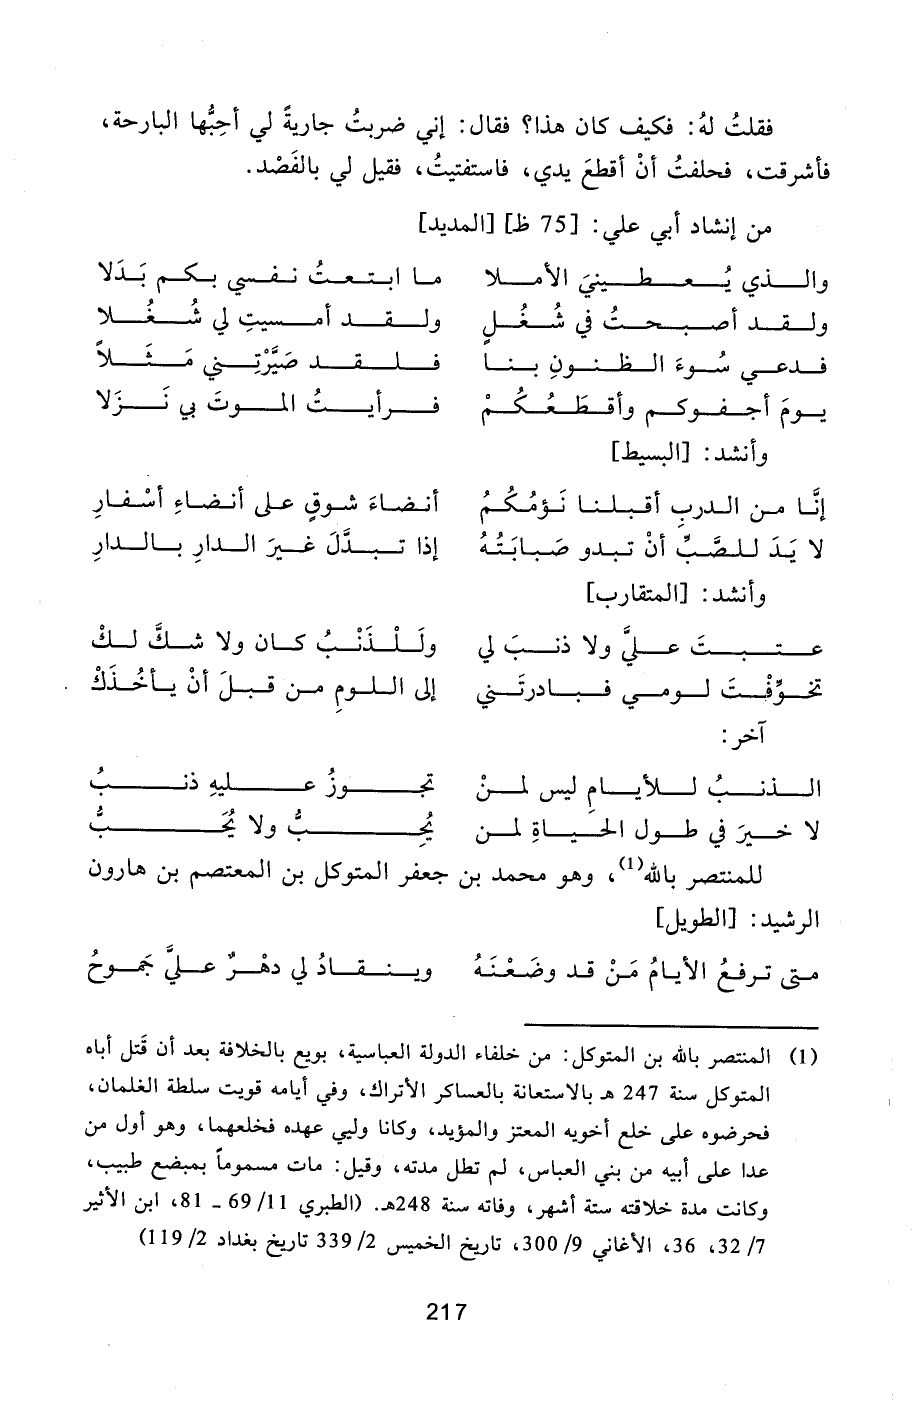 فقلتُ لهُ: فكيف كان هذا؟ فقال: إني ضربتُ جاريةً لي أحِبُّها البارحة،
فأشرقت، فحلفتُ أنْ أقطعَ يدي، فاستفتيتُ، فقيل لي بالفَصْد.
من إنشاد أبي علي: [75 ظ] [المديد]
والذي يُعطينيَ الأملا ما ابتعتُ نفسي بكم بَدَلا
ولقد أصبحتُ في شُغُلٍ ولقد أمسيت لي شُغُلا
فدعي سُوءَ الظنونِ بنا فلقد صَيَّرْتِني مَثَلاً
يومَ أجفوكم وأقطَعُكُمْ فرأيتُ الموتَ بي نَزَلا
وأنشد: [البسيط]
إنَّا من الدربِ أقبلنا نَؤمُكُمُ أنضاءَ شوقٍ على أنضاءِ أسْفارِ
لا بُدَّ للصَّبِّ أنْ تبدو صَبابَتُهُ إذا تبدَّلَ غيرَ الدارِ بالدارِ
وأنشد: [المتقارب]
عتبتَ عليَّ ولا ذنبَ لي ولَلْذَنْبُ كان ولا شكَّ لكْ
تخوَّفْتَ لومي فبادرتَني إلى اللومِ من قبلَ أنْ يأخُذَكْ
آخر:
الذنبُ للأيامِ ليس لمنْ تجوزُ عليه ذنبُ
لا خيرَ في طول الحياةِ لمن يُحِبُّ ولا يُحَبُّ
للمنتصر بالله(1)، وهو محمد بن جعفر المتوكل بن المعتصم بن هارون
الرشيد: [الطويل]
متى ترفعُ الأيامُ مَنْ قد وضَعْنَهُ وينقادُ لي دهْرٌ عليَّ جموحُ
(1) المنتصر بالله بن المتوكل: من خلفاء الدولة العباسية، بويع بالخلافة بعد أن قَتل أباه
المتوكل سنة 247 هـ بالاستعانة بالعساكر الأتراك، وفي أيامه قويت سلطة الغلمان،
فحرضوه على خلع أخويه المعتز والمؤيد، وكانا وليي عهده فخلعهما، وهو أول من
عدا على أبيه من بني العباس، لم تطل مدته، وقيل: مات مسموماً بمبضع طبيب،
وكانت مدة خلافته ستة أشهر، وفاته سنة 248هـ. (الطبري 11/ 69 ـ 81، ابن الأثير
7/ 32، 36، الأغاني 9/ 300، تاريخ الخميس 2/ 339 تاريخ بغداد 2/ 119)
217